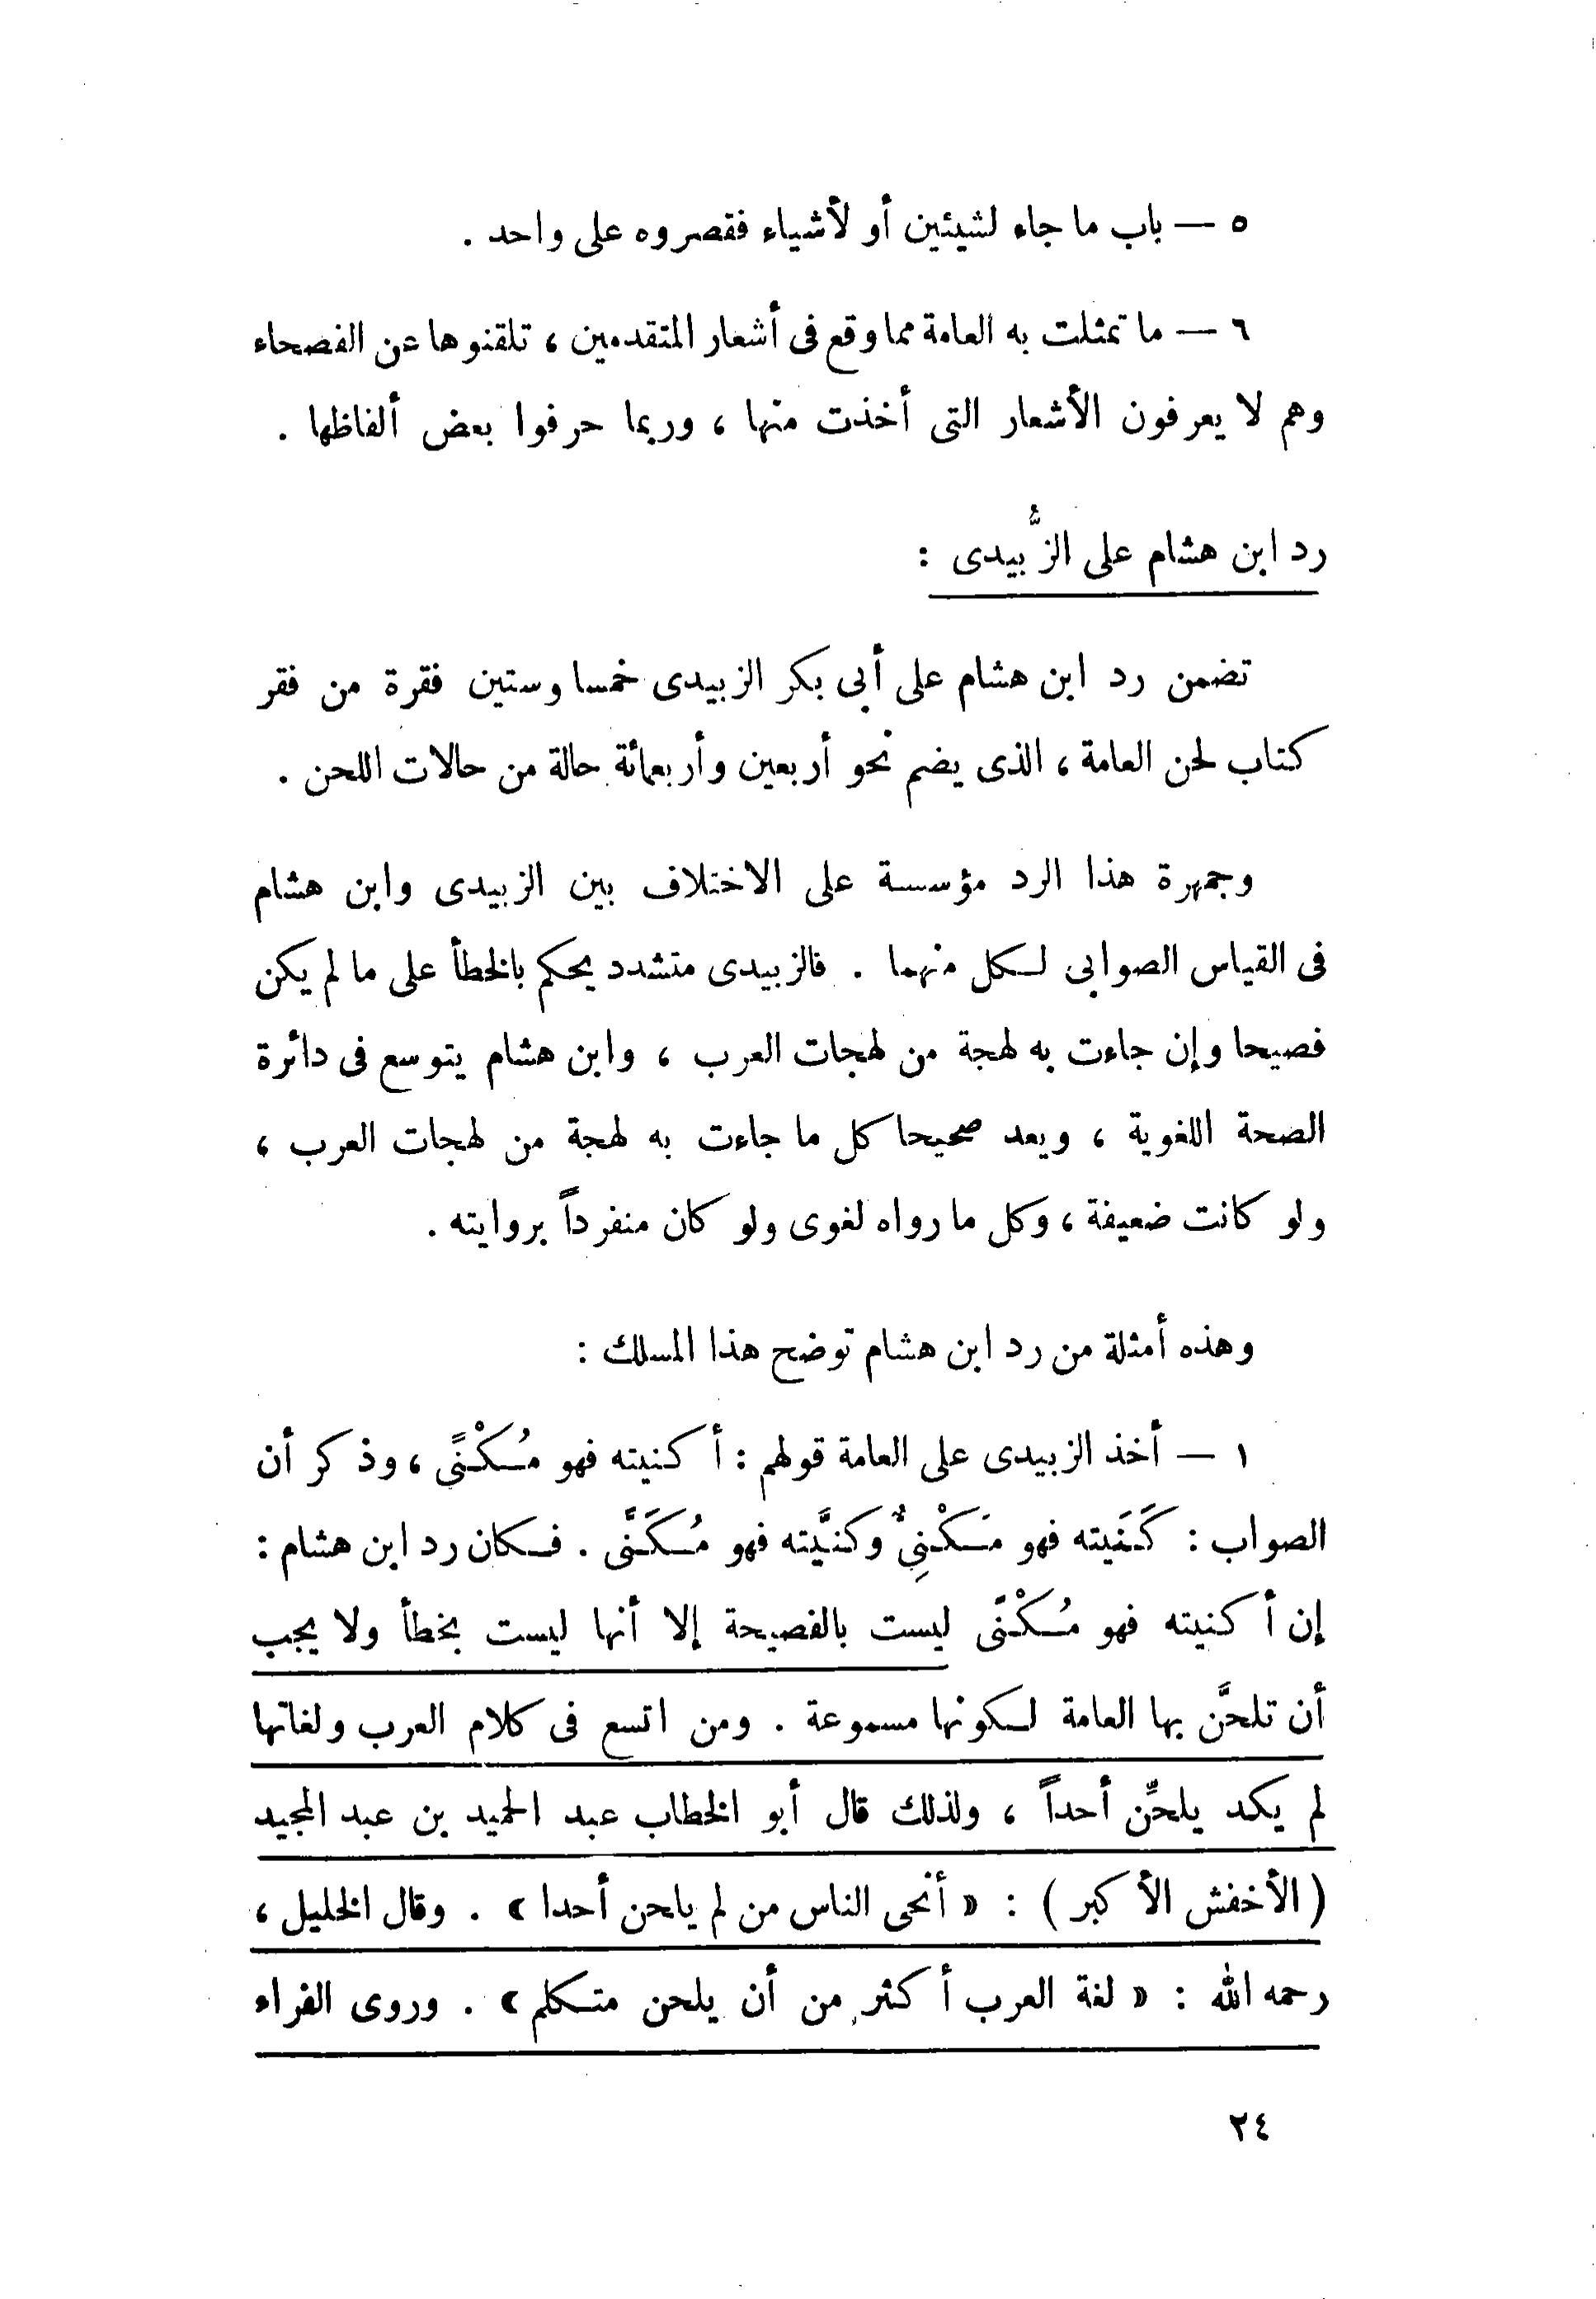 ٥ — باب ما جاء لشيئين أو لأشياء فقصروه على واحد .
٦ — ما تمثلت به العامة مما وقع فى أشعار المتقدمين ، تلقنوها عن الفصحاء
وهم لا يعرفون الأشعار التى أخذت منها ، وربما حرفوا بعض ألفاظها .
رد ابن هشام على الزُّبيدى :
تضمن رد ابن هشام على أبى بكر الزبيدى خمسا وستين فقرة من فقر
كتاب لحن العامة ، الذى يضم نحو أربعين وأربعمائة حالة من حالات اللحن .
وجمهرة هذا الرد مؤسسة على الاختلاف بين الزبيدى وابن هشام
فى القياس الصوابى لكل منهما . فالزبيدى متشدد يحكم بالخطأ على ما لم يكن
فصيحا وإن جاءت به لهجة من لهجات العرب ، وابن هشام يتوسع فى دائرة
الصحة اللغوية ، ويعد صحيحا كل ما جاءت به لهجة من لهجات العرب ،
ولو كانت ضعيفة ، وكل ما رواه لغوى ولو كان منفرداً بروايته .
وهذه أمثلة من رد ابن هشام توضح هذا المسلك :
١ — أخذ الزبيدى على العامة قولهم : أكنيته فهو مُكْنًى ، وذكر أن
الصواب : كَنَيته فهو مَكْنِىٌّ وكنَّيته فهو مُكَنًّى . فكان رد ابن هشام :
إن أكنيته فهو مُكْنًى ليست بالفصيحة إلا أنها ليست بخطأ ولا يجب
أن تلحَّن بها العامة لكونها مسموعة . ومن اتسع فى كلام العرب ولغاتها
لم يكد يلحِّن أحداً ، ولذلك قال أبو الخطاب عبد الحميد بن عبد المجيد
( الأخفش الأكبر ) : « أنحى الناس من لم يلحن أحدا » . وقال الخليل ،
رحمه الله : « لغة العرب أكثر من أن يلحن متكلم » . وروى الفراء
٢٤